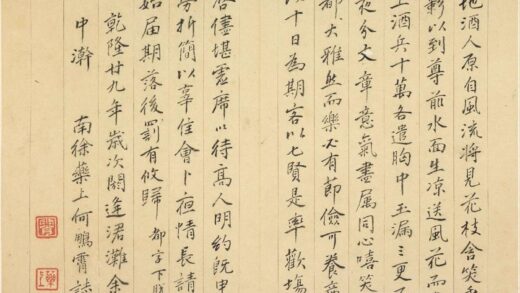 地酒人原自風流將見花枝含笑
以到尊前水面生凉送風花而
上酒兵十萬各遣胸中玉漏三更
夜分文章意氣盡属同心嘻笑
都大雅然而樂必有節儉可養
以十日為期客以七賢是率歡塲
啓儘堪虛席以待高人明約既申
勞折簡以辜佳會卜夜情長請
如届期落後罰有攸歸 都字下脱
乾隆廿九年歲次閼逢涒灘余
中澣 南徐藥上何鵬霄誌